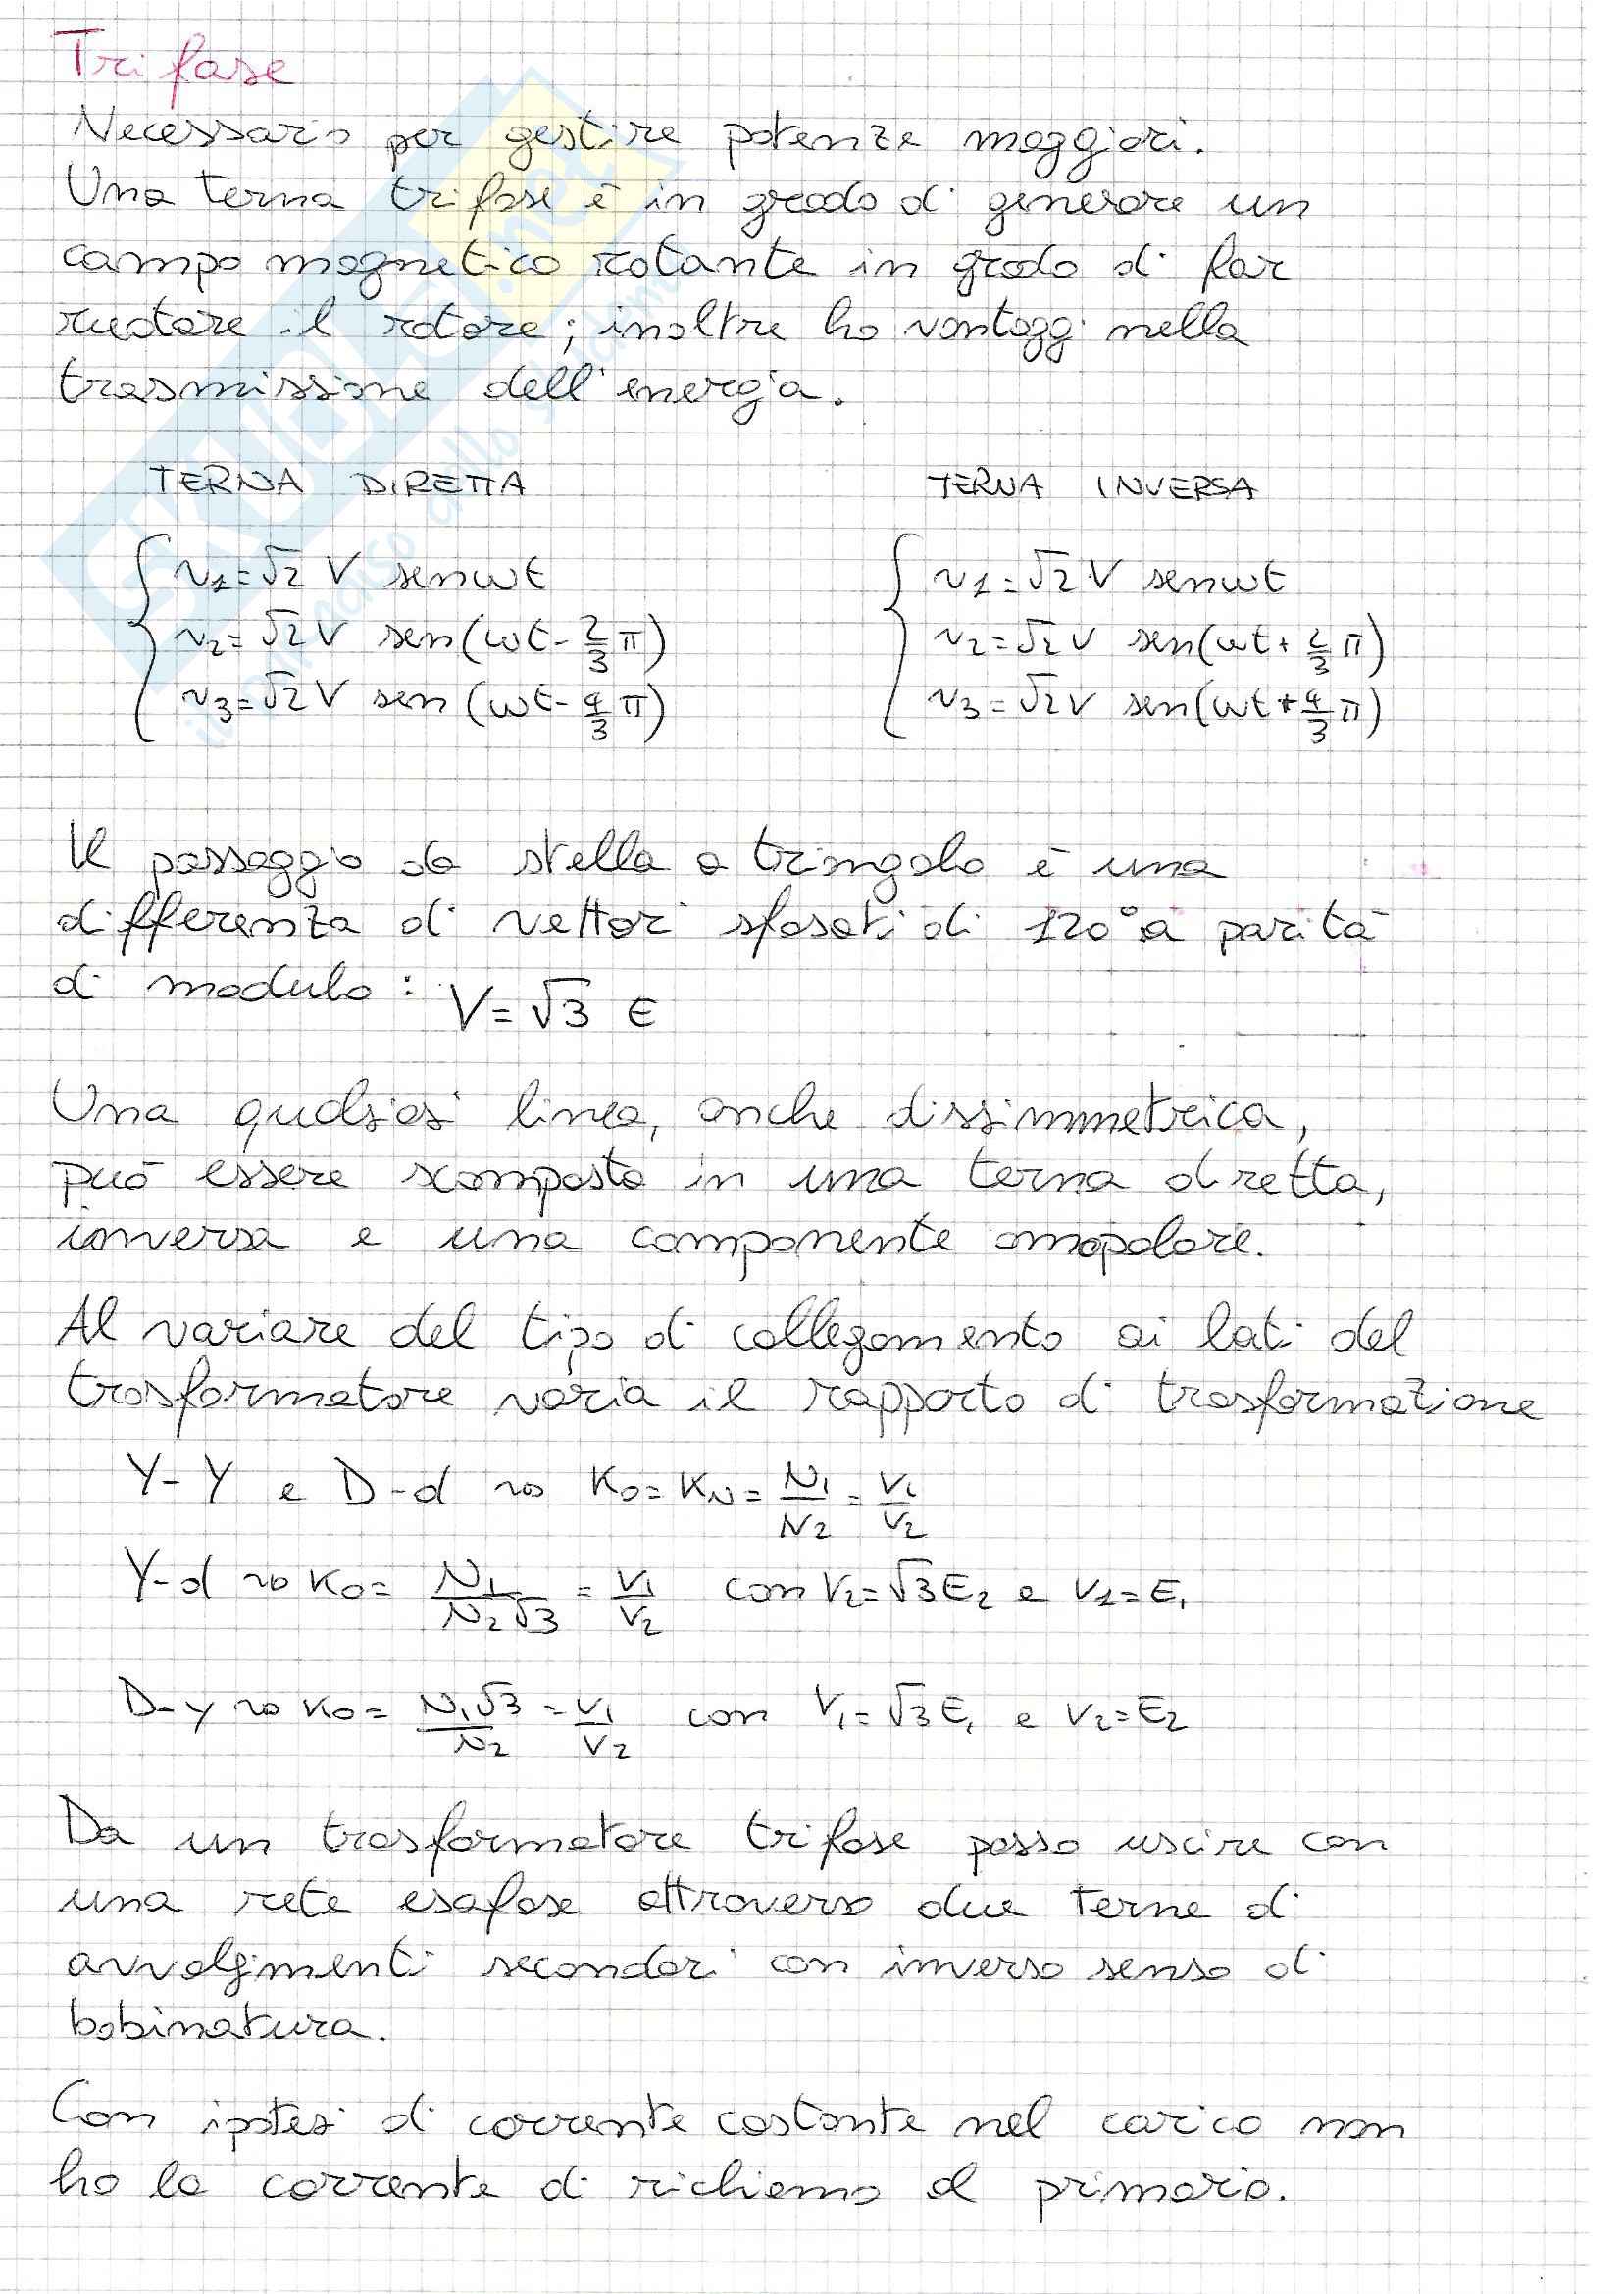 Trifase
Necessario per gestire potenze maggiori.
Una terna trifase è in grado di generare un
campo magnetico rotante in grado di far
ruotare il rotore; inoltre ho vantaggi nella
trasmissione dell'energia.
TERNA DIRETTA TERNA INVERSA
v1=√2 V senωt v1=√2 V senωt
v2=√2 V sen(ωt-2/3 π) v2=√2 V sen(ωt+2/3 π)
v3=√2 V sen(ωt-4/3 π) v3=√2 V sen(ωt+4/3 π)
Il passaggio da stella a triangolo è una
differenza di vettori sfasati di 120° a parità
di modulo: V=√3 E
Una qualsiasi linea, anche dissimmetrica,
può essere scomposta in una terna diretta,
inversa e una componente omopolare.
Al variare del tipo di collegamento ai lati del
trasformatore varia il rapporto di trasformazione
Y-Y e D-d ⇝ K0=KN=N1/N2=V1/V2
Y-d ⇝ K0=N1/N2√3=V1/V2 con V2=√3E2 e V1=E1
D-y ⇝ K0=N1√3/N2=V1/V2 con V1=√3E1 e V2=E2
Da un trasformatore trifase posso uscire con
una rete esafase attraverso due terne di
avvolgimenti secondari con inverso senso di
bobinatura.
Con ipotesi di corrente costante nel carico non
ho la corrente di richiamo al primario.